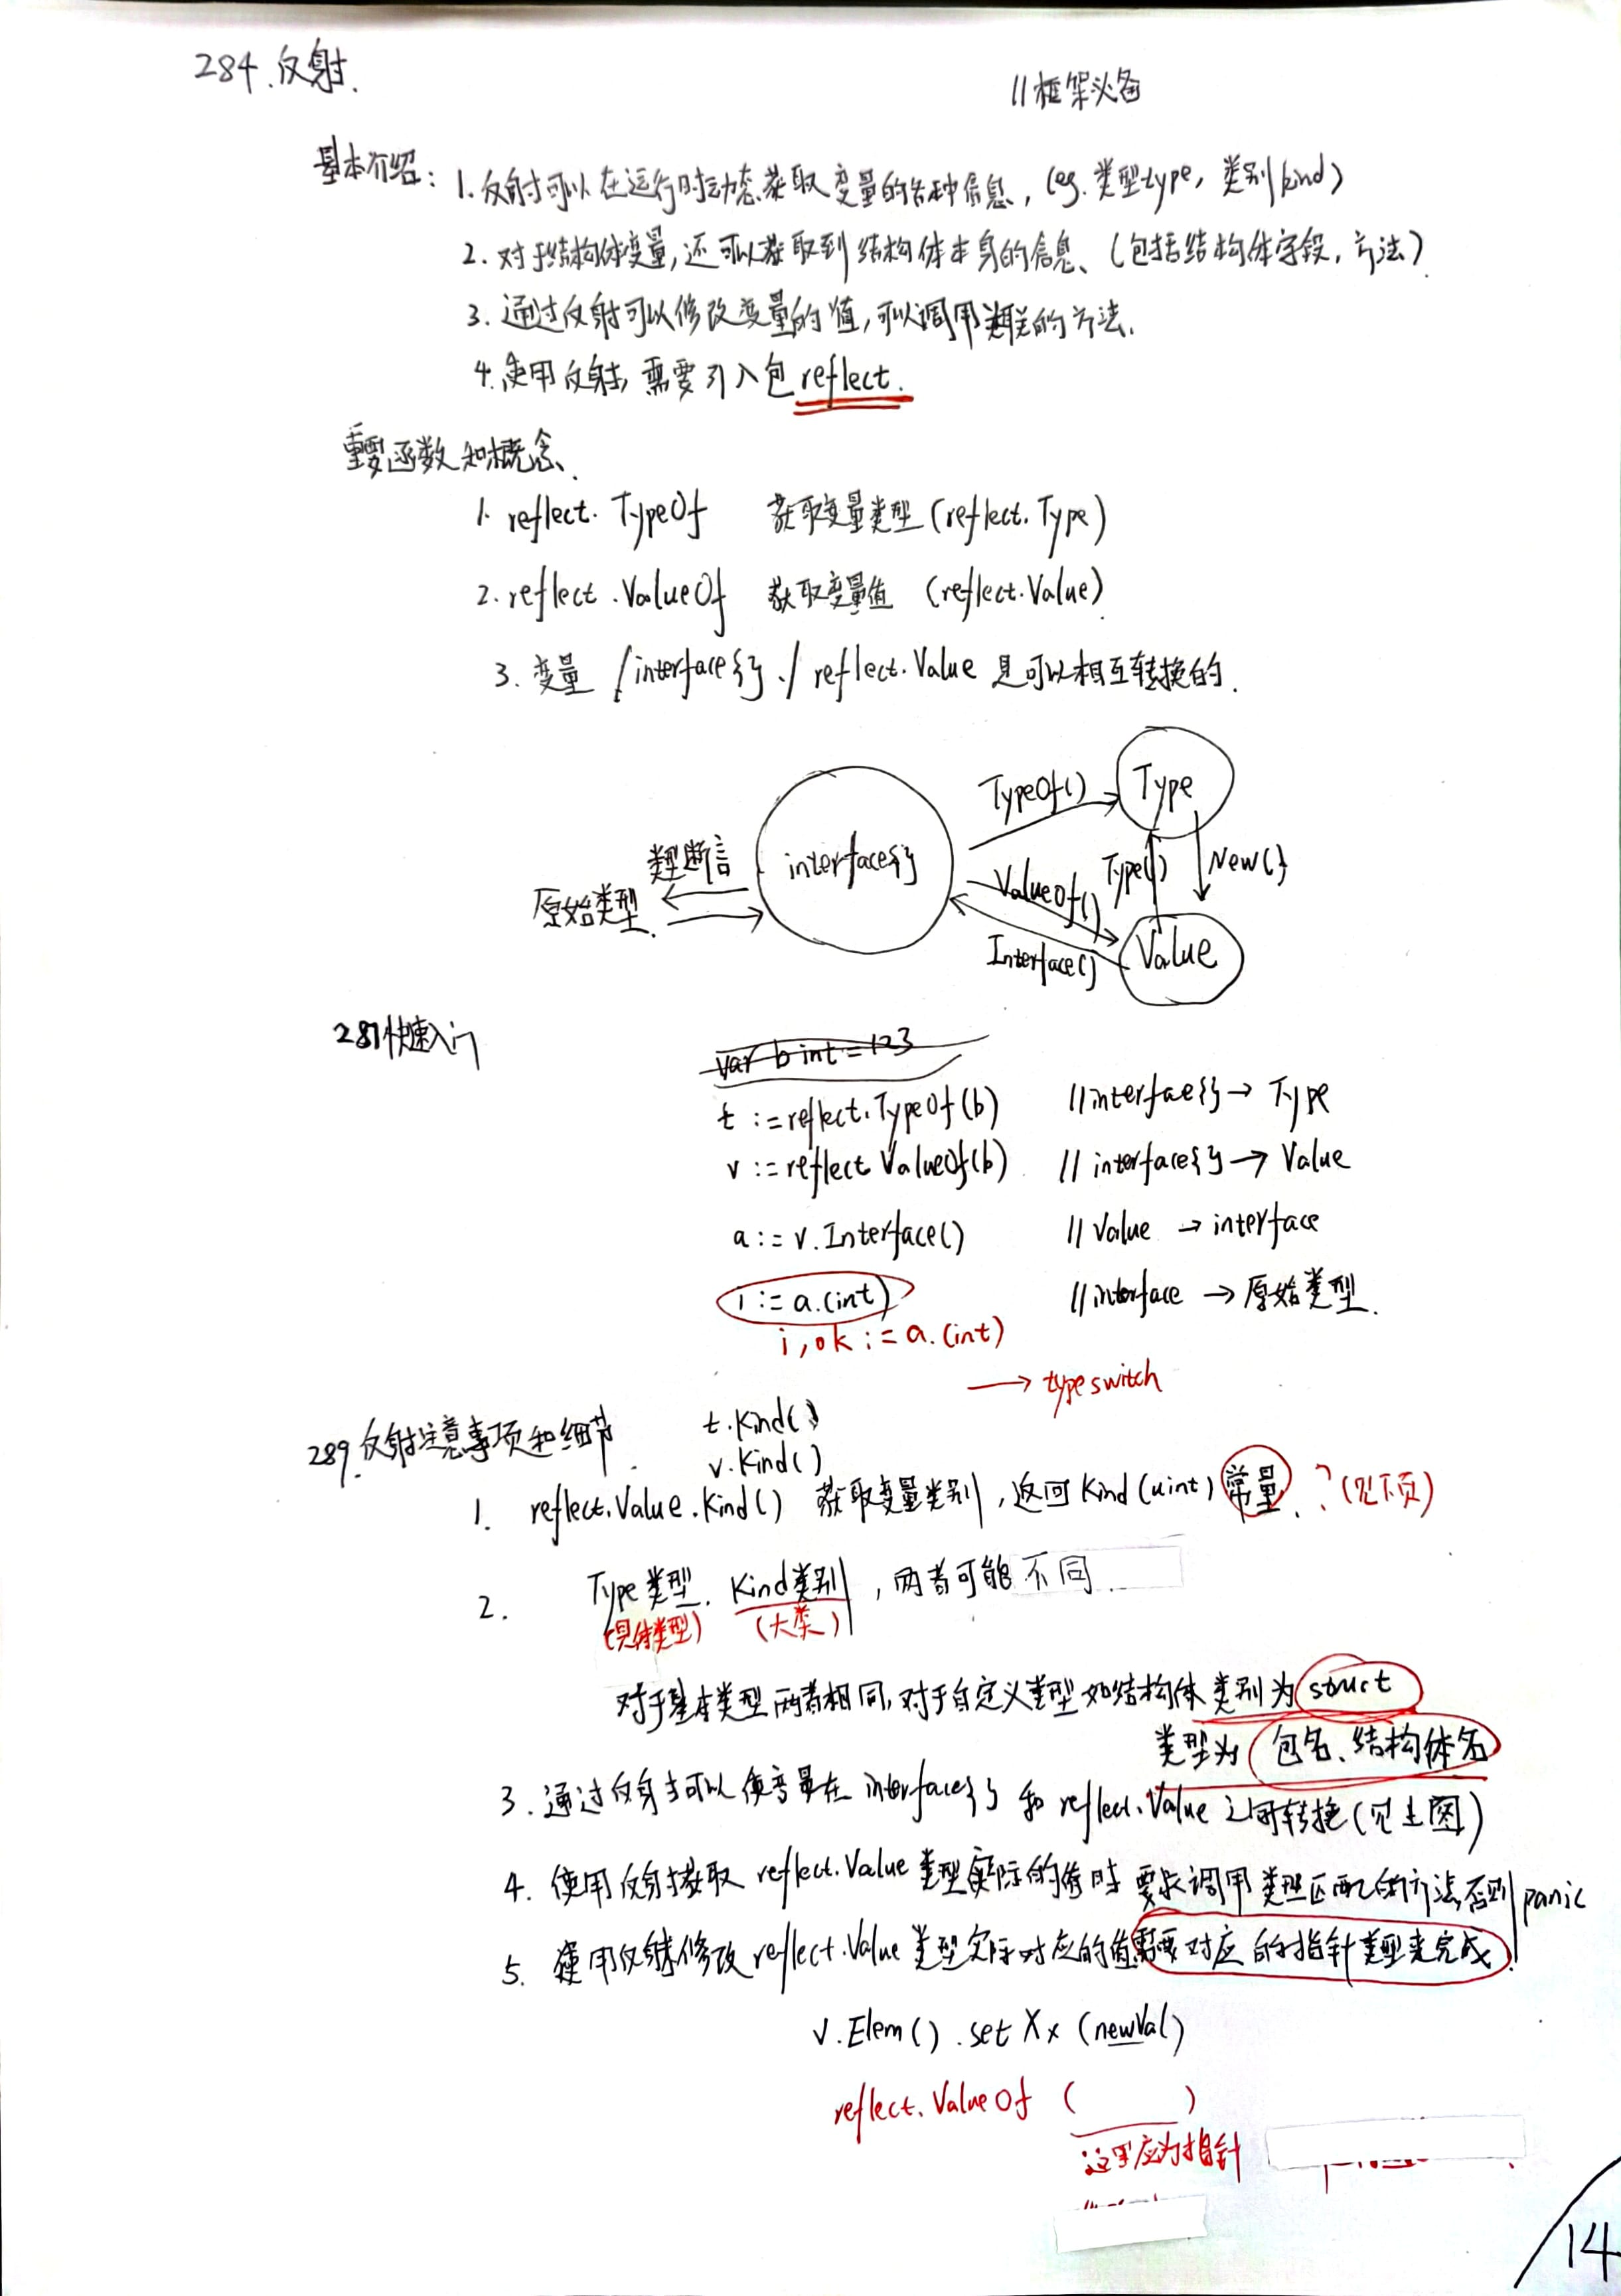 284.反射.
//框架必备
基本介绍:1.反射可以在运行时动态获取变量的各种信息,(eg.类型type,类别kind)
2.对于结构体变量,还可以获取到结构体本身的信息、(包括结构体字段,方法)
3.通过反射可以修改变量的值,可以调用关联的方法.
4.使用反射,需要引入包reflect.
重要函数和概念、
1. reflect.TypeOf 获取变量类型(reflect.Type)
2. reflect.ValueOf 获取变量值 (reflect.Value)
3. 变量 / interface{} / reflect.Value 是可以相互转换的.
TypeOf() Type
类型断言 interface{} ValueOf() Type() New()
原始类型 Interface() Value
287快速入门
var b int = 123
t := reflect.TypeOf(b) //interfae{} → Type
v := reflect ValueOf(b) // interface{} → Value
a := v.Interface() // Value → interface
i := a.(int) // interface → 原始类型.
i, ok := a.(int)
→ type switch
t.Kind()
289.反射注意事项和细节.
v.Kind()
1. reflect.Value.Kind() 获取变量类别,返回Kind(uint)常量.?(见下页)
2. Type类型. Kind类别,两者可能不同.
(具体类型) (大类)
对于基本类型两者相同,对于自定义类型如结构体类别为struct
类型为包名.结构体名
3.通过反射可以使变量在interface{}和reflect.Value之间转换(见上图)
4. 使用反射获取reflect.Value类型实际的值时要求调用类型匹配的方法,否则panic
5. 使用反射修改reflect.Value类型实际对应的值需要对应的指针类型来完成.
v.Elem().set Xx (newVal)
reflect.ValueOf ( )
这里应为指针
14